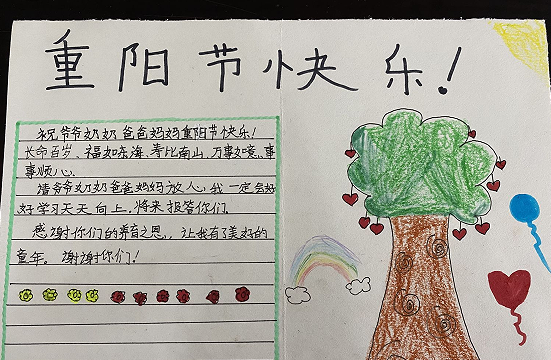 重阳节快乐!
祝爷爷奶奶爸爸妈妈重阳节快乐!
长命百岁、福如东海、寿比南山、万事如意、事
事顺心。
请爷爷奶奶爸爸妈妈放心,我一定会好
好学习天天向上,将来报答你们。
感谢你们的养育之恩,让我有了美好的
童年。谢谢你们!